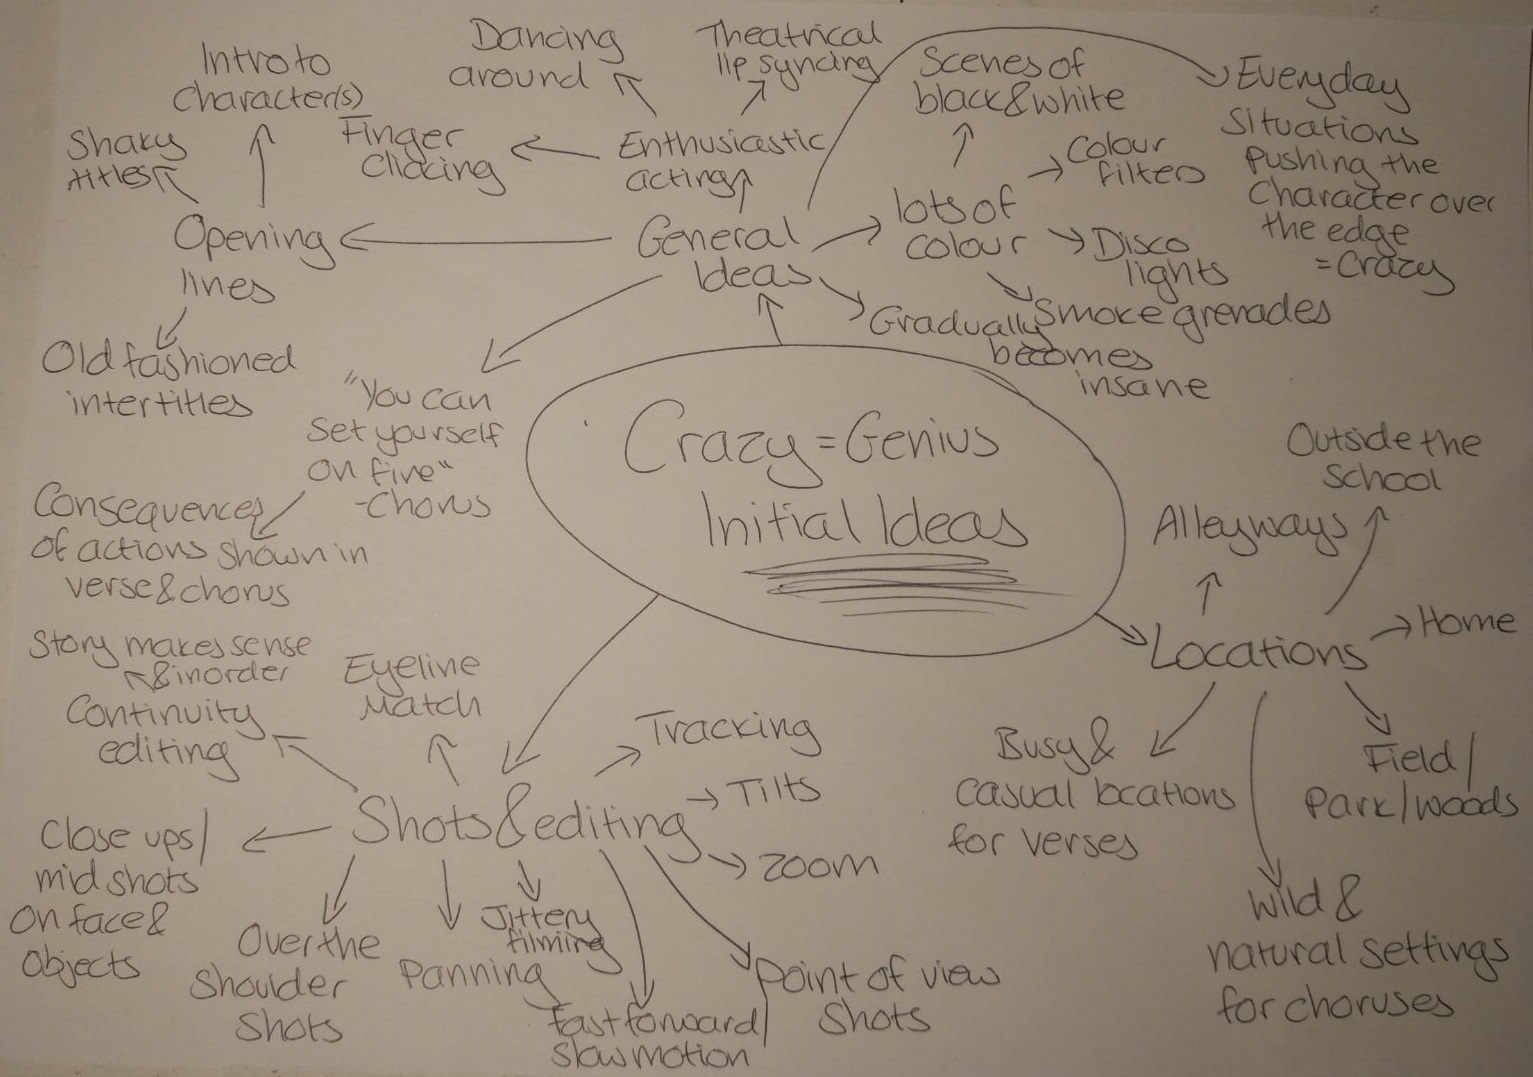 Crazy = Genius
Initial Ideas
General
Ideas
Opening
lines
Intro to
Character(s)
Shaky
titles
Old fashioned
intertitles
Enthusiastic
acting
Finger
Clicking
Dancing
around
Theatrical
lip syncing
lots of
colour
Scenes of
black & white
Colour
filters
Disco
lights
Smoke grenades
Everyday
Situations
pushing the
Character over
the edge
= Crazy
Gradually
becomes
insane
"You can
set yourself
on fire"
- Chorus
Consequences
of actions shown in
verse & chorus
Locations
Alleyways
Outside the
School
Home
Field /
Park / woods
Wild &
natural settings
for choruses
Busy &
casual locations
for verses
Shots & editing
Eyeline
Match
Continuity
editing
Story makes sense
& in order
Close ups /
mid shots
on face &
Objects
Over the
Shoulder
Shots
Panning
Jittery
filming
Fast forward /
slow motion
Point of view
Shots
Zoom
Tilts
Tracking